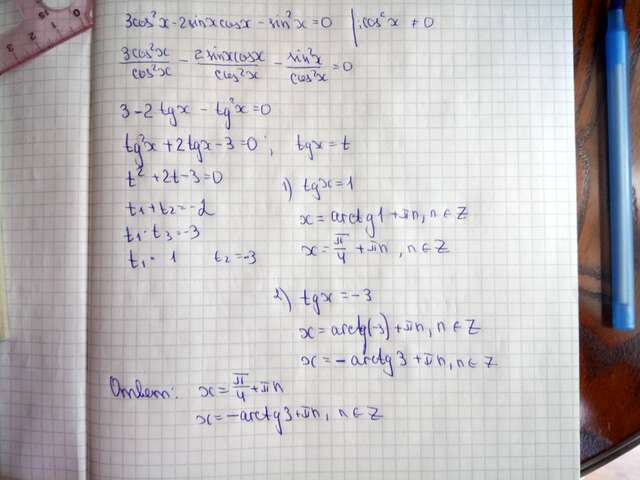 3cos²x - 2sinxcosx - sin²x = 0 | : cos²x ≠ 0
3cos²x/cos²x - 2sinxcosx/cos²x - sin²x/cos²x = 0
3 - 2tgx - tg²x = 0
tg²x + 2tgx - 3 = 0; tgx = t
t² + 2t - 3 = 0
t₁ + t₂ = -2
t₁ · t₃ = -3
t₁ = 1 t₂ = -3
1) tgx = 1
x = arctg1 + πn, n ∈ Z
x = π/4 + πn, n ∈ Z
2) tgx = -3
x = arctg(-3) + πn, n ∈ Z
x = -arctg3 + πn, n ∈ Z
Ответ: x = π/4 + πn
x = -arctg3 + πn, n ∈ Z